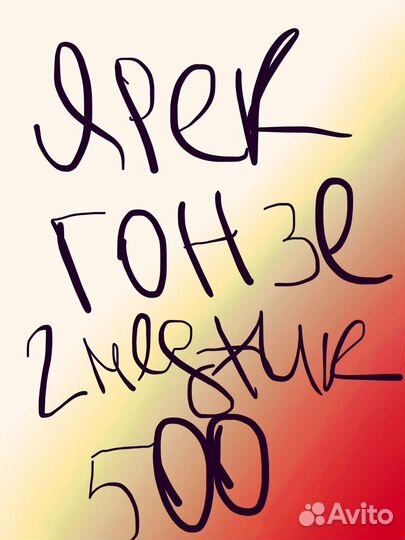 ЯРЕК
ГОНЗЕ
2 меджик
500
Avito